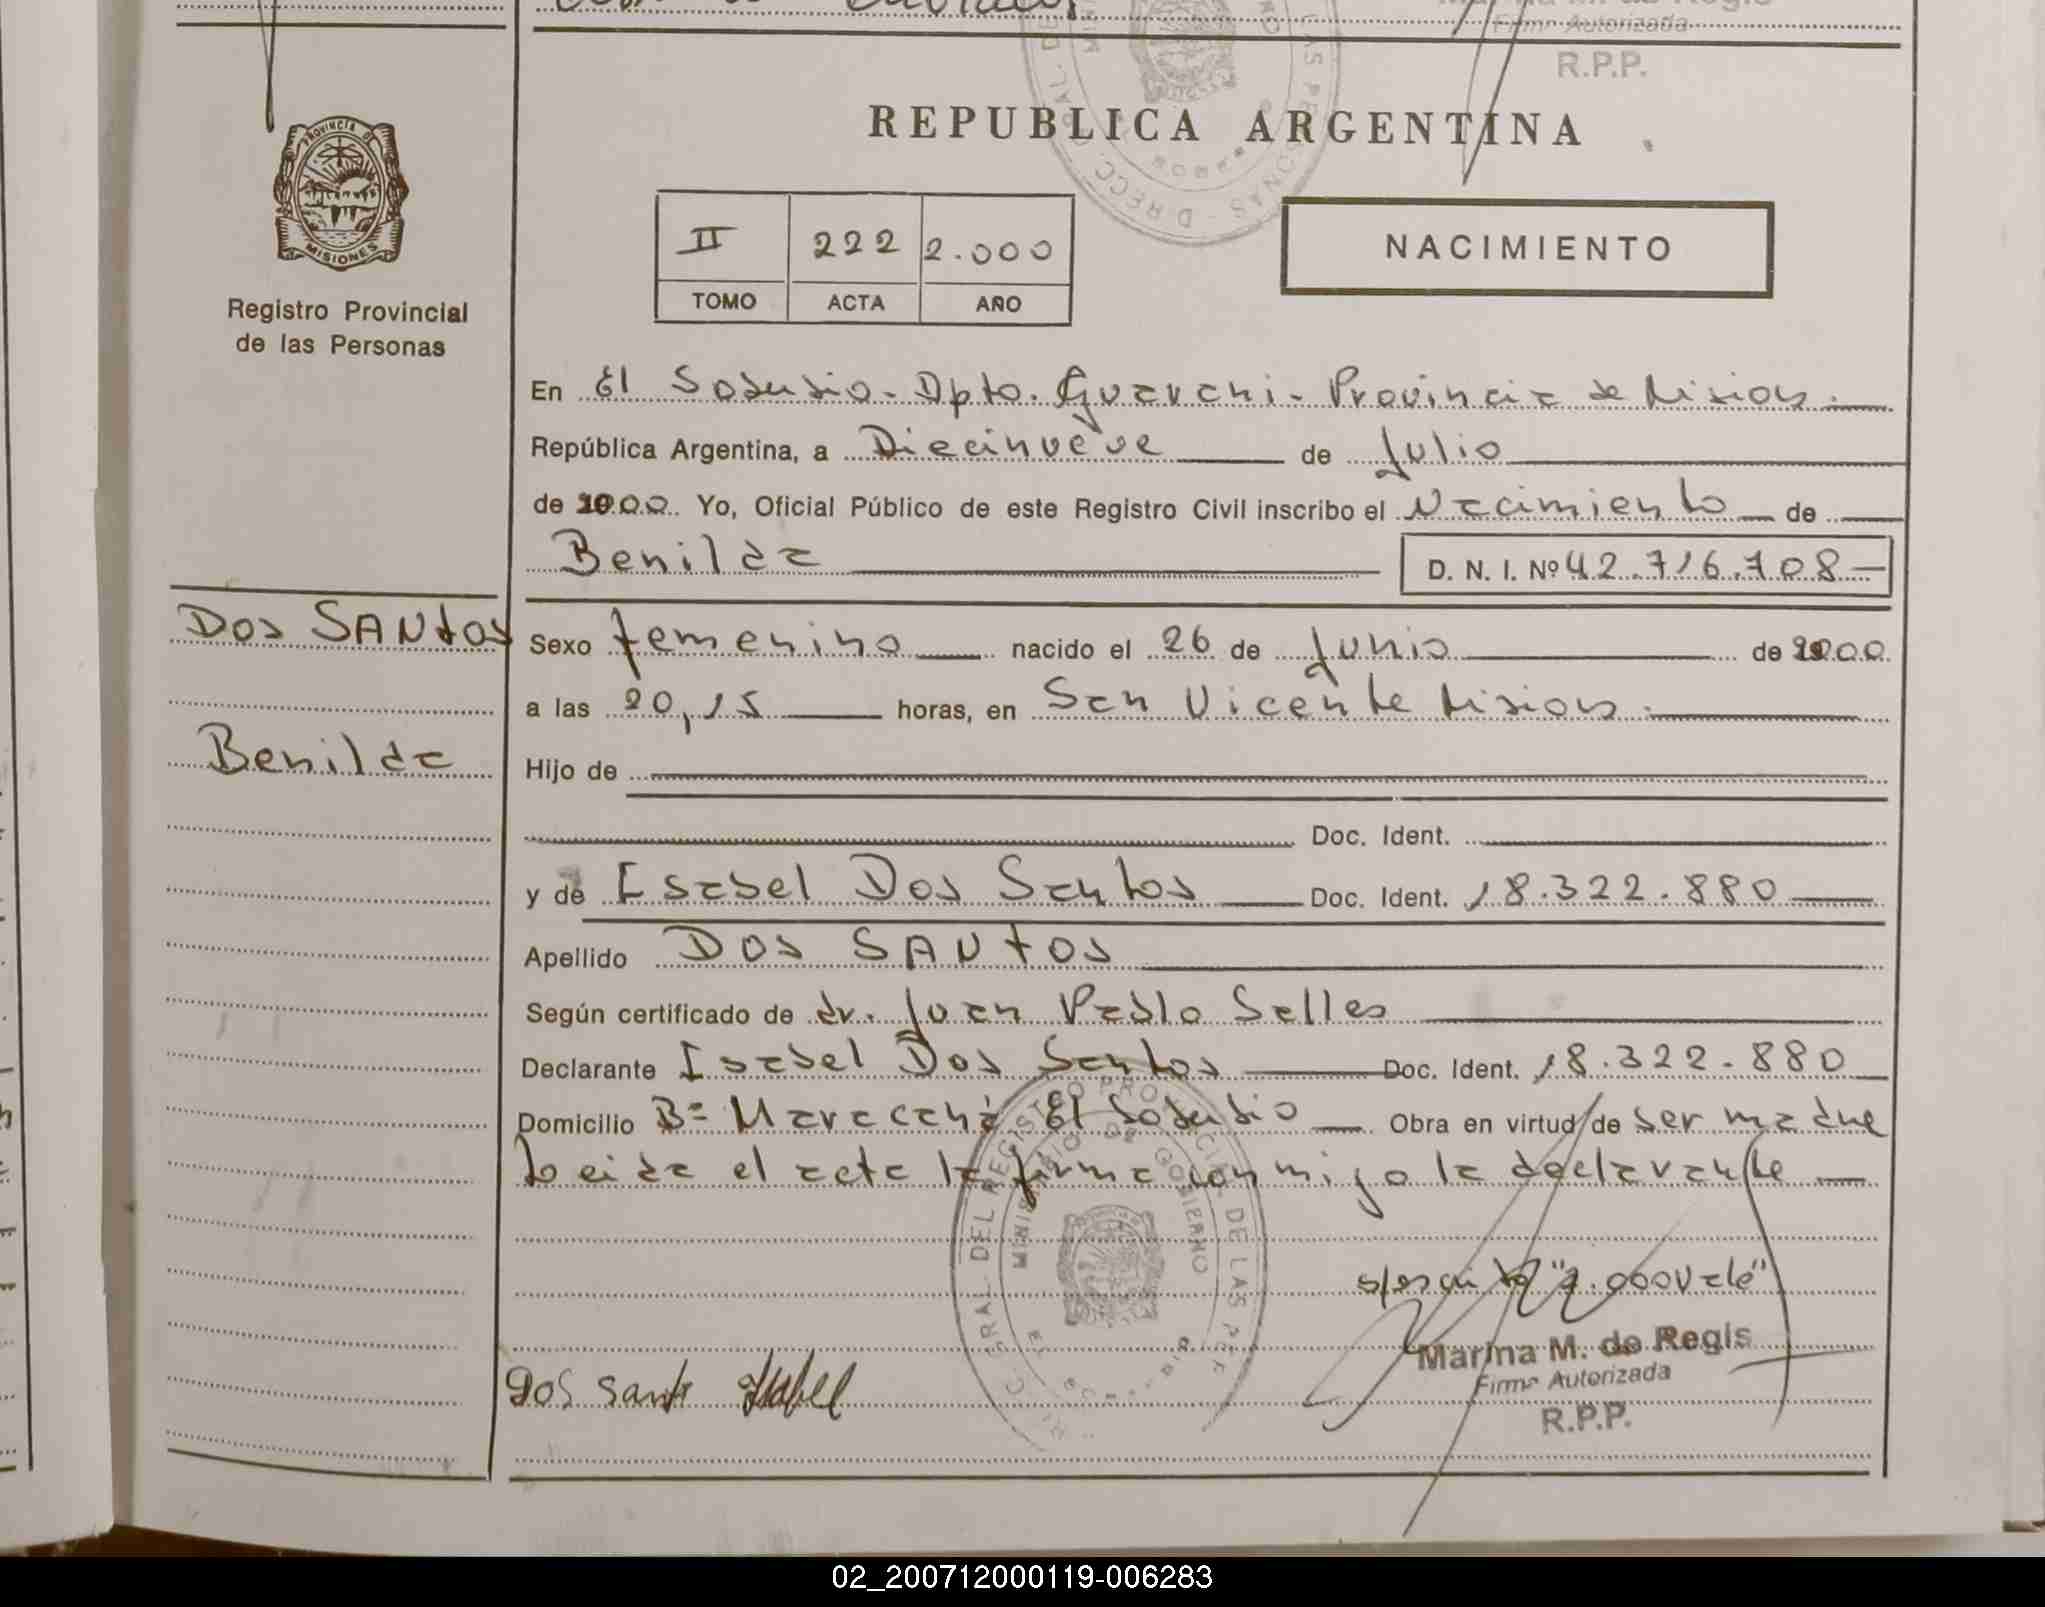 Firma Autorizada
R.P.P.
REPUBLICA ARGENTINA
PROVINCIA DE
MISIONES
Registro Provincial
de las Personas
II 222 2.000
TOMO ACTA AÑO
NACIMIENTO
En El Soberbio - Dpto. Guarani - Provincia de Misiones.
República Argentina, a Diecinueve de Julio
de 2000. Yo, Oficial Público de este Registro Civil inscribo el Nacimiento de
Benilda D. N. I. Nº 42.716.708
Dos SANtos
Benilda
Sexo femenino nacido el 26 de Junio de 2000
a las 20,15 horas, en San Vicente Misiones.
Hijo de
Doc. Ident.
y de Isabel Dos Santos Doc. Ident. 18.322.880
Apellido DOS SANTOS
Según certificado de dr. Juan Pablo Salles
Declarante Isabel Dos Santos Doc. Ident. 18.322.880
Domicilio Bº Maracaná El Soberbio Obra en virtud de ser madre
Leida el acta la firma conmigo la declarante
s/escrito "2.000 Vale"
Marina M. de Regis
Firma Autorizada
R.P.P.
Dos Santo Isabel
02_200712000119-006283